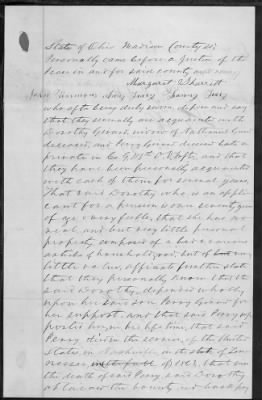 State of Ohio Madison County ss
Personally came before a Justice of the
peace in and for said county
Margaret Sharrett
who after being duly sworn, depose and say
that they severally are acquainted with
Dorothy Gerard, widow of Nathaniel
deceased, and Perry Gerard deceased late a
private in Co G, O.V. and that
they have been personally acquainted
with each of them for several years
That said Dorothy who is an appli
cant for a pension is over seventy years
of age & very feeble, that she has no
real and but very little personal
property, composed of a
articles of household good, but of
little value, affiants further state
that they personally know that the
said Dorothy, depended wholly
upon his said son Perry Gerard for
her support, and that said Perry sup
ported her, in his life time, that said
Perry died in the service, of the United
States, in Nashville, in the state of Ten
nessee, in the fall of 1863, that on
the death of said Perry, said Dorothy
obtained the bounty and back pay